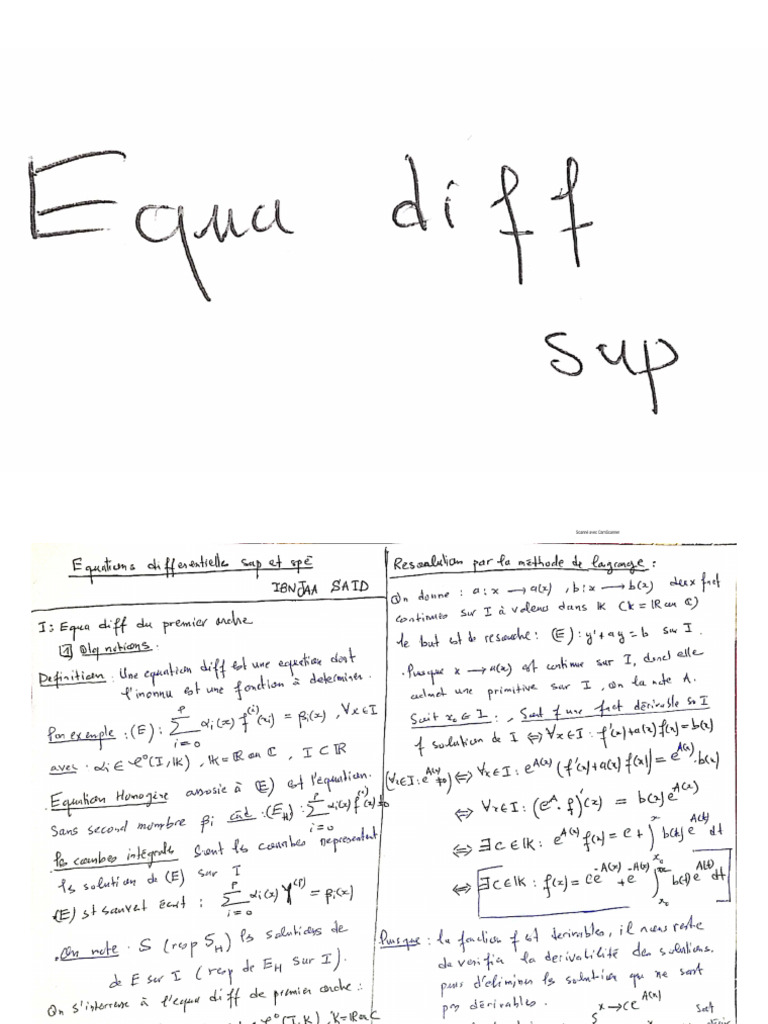 Equa diff
sup
Scanné avec CamScanner
Equations differentielle sup et spé
IBNJAA SAID
I: Equa diff du premier ordre
1
Definition : Une equation diff est une equation dont
l'inonnu est une fonction à determiner.
Par exemple : (E) : ∑_{i=0}^{p} αi(x) f^(i)(x) = βi(x), ∀x∈I
avec : αi ∈ 𝒞⁰(I, IK), IK = IR ou ℂ, I ⊂ IR
Equation Homogène associe à (E) est l'équation.
Sans second mombre βi : (E_H) : ∑_{i=0}^{p} αi(x) f^(i)(x) = 0
les courbes intégrals sont les courbes representant
les solution de (E) sur I
(E) st souvet écrit : ∑_{i=0}^{p} αi(x) Y^(i) = βi(x)
On note S (resp S_H) les solutions de
de E sur I (resp de E_H sur I).
On s'interesse à l'equa diff de premier ordre :
Resoulution par la méthode de lagrange :
On donne : a : x → a(x), b : x → b(x) deux fnct
continues sur I à valeurs dans IK (K = IR ou ℂ)
le but est de resoudre : (E) : y' + ay = b sur I.
Puisque x → a(x) est continue sur I, donc elle
admet une primitive sur I, on la note A.
Soit x₀ ∈ I : , Soit f une fnct dérivable sr I
f solution de I ⟺ ∀x∈I : f'(x) + a(x) f(x) = b(x)
(∀x∈I : e^{A(x)} ≠ 0) ⟺ ∀x∈I : e^{A(x)} (f'(x) + a(x) f(x)) = e^{A(x)} . b(x)
⟺ ∀x∈I : (e^A . f)'(x) = b(x) e^{A(x)}
⟺ ∃c∈IK : e^{A(x)} f(x) = c + ∫_{x₀}^{x} b(t) e^{A(t)} dt
⟺ ∃c∈IK : f(x) = c e^{-A(x)} + e^{-A(x)} ∫_{x₀}^{x} b(t) e^{A(t)} dt
Puisque : la fonction f est derivables, il nous reste
de verifie la derivabilité des solutions.
pour d'eliminer les solution que ne sont
pas dérivables.
x → c e^{A(x)} soit